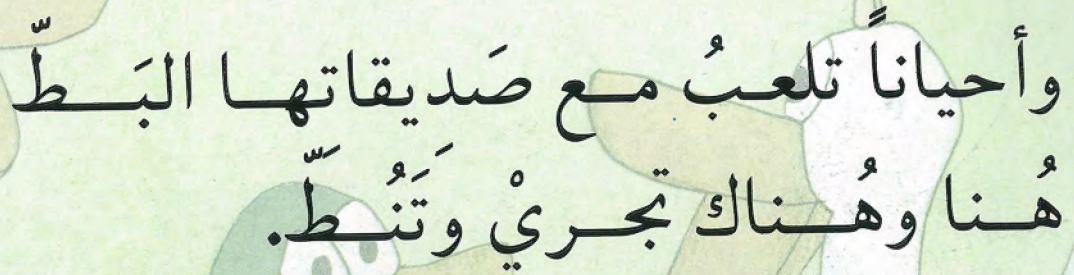 وأحياناً تلعبُ مع صَديقاتها البَطّ
هُنا وهُناك تجريْ وَتَنُطَّ.